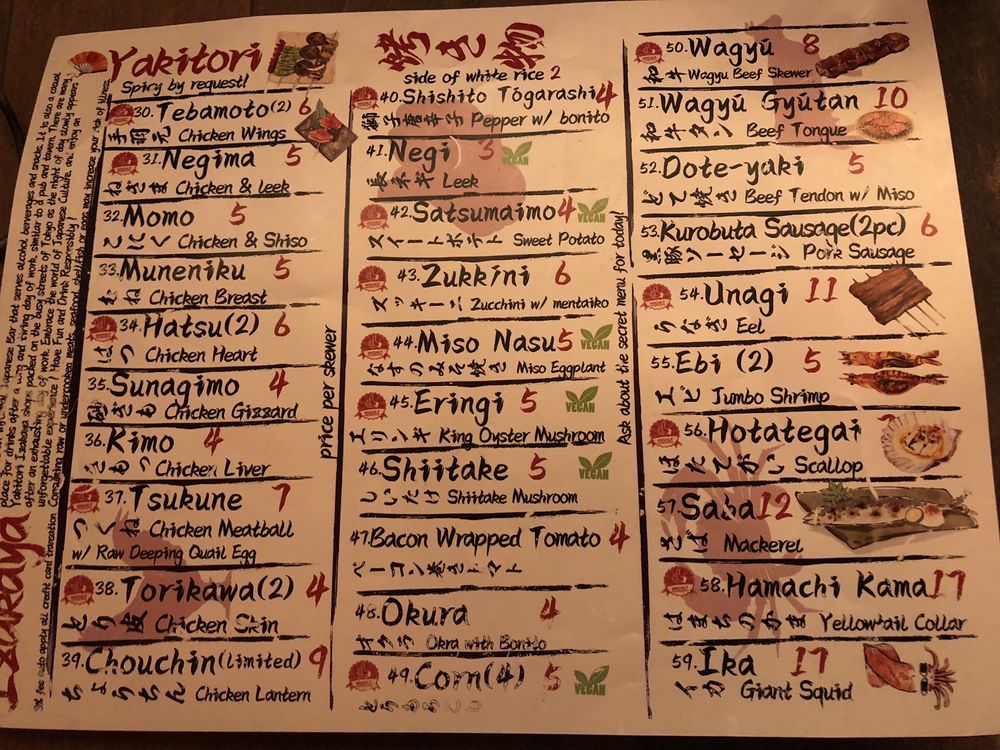 Yakitori
Spicy by request!
30. Tebamoto(2) 6
手羽元 Chicken Wings
31. Negima 5
ねぎま Chicken & leek
32. Momo 5
こにく Chicken & Shiso
33. Muneniku 5
むね Chicken Breast
34. Hatsu(2) 6
はつ Chicken Heart
35. Sunagimo 4
Chicken Gizzard
36. Kimo 4
きもつ Chicken Liver
37. Tsukune 7
つくね Chicken Meatball
w/ Raw Deeping Quail Egg
38. Torikawa(2) 4
とり皮 Chicken Skin
39. Chouchin(limited) 9
ちょうちん Chicken Lantern
price per skewer
焼き物
side of white rice 2
40. Shishito Tógarashi 4
獅子唐辛子 Pepper w/ bonito
41. Negi 3 VEGAN
長ネギ Leek
42. Satsumaimo 4 VEGAN
スイートポテト Sweet Potato
43. Zukkíni 6
ズッキーニ Zucchini w/ mentaiko
44. Miso Nasu 5 VEGAN
なすのみそ焼き Miso Eggplant
45. Eringi 5 VEGAN
エリンギ King Oyster Mushroom
46. Shiitake 5 VEGAN
しいたけ Shiitake Mushroom
47. Bacon Wrapped Tomato 4
ベーコン巻きトマト
48. Okura 4
オクラ Okra with Bonito
49. Corn(4) 5 VEGAN
Ask about the secret menu for today!
50. Wagyú 8
和牛 Wagyu Beef Skewer
51. Wagyú Gyútan 10
和牛タン Beef Tongue
52. Dote-yaki 5
どて焼き Beef Tendon w/ Miso
53. Kurobuta Sausage(2pc) 6
黒豚ソーセージ Pork Sausage
54. Unagi 11
うなぎ Eel
55. Ebi (2) 5
エビ Jumbo Shrimp
56. Hotategai
ほたてがい Scallop
57. Saba 12
さば Mackerel
58. Hamachi Kama 17
はまちのかま Yellowtail Collar
59. Ika 17
イカ Giant Squid
Izakaya
place for drinks after a long and tiring day of work, similar to a pub and tavern. There are many
Yakitori Izakaya shops packed on the busy streets of Tokyo as the night of day slowly appears
after an exhausting day of work. Embrace the world of Japanese Culture, and enjoy an
unforgettable experience! Have Fun and Drink Responsibly!
Consuming raw or undercooked meats, seafood, shellfish or eggs may increase your risk of illness.